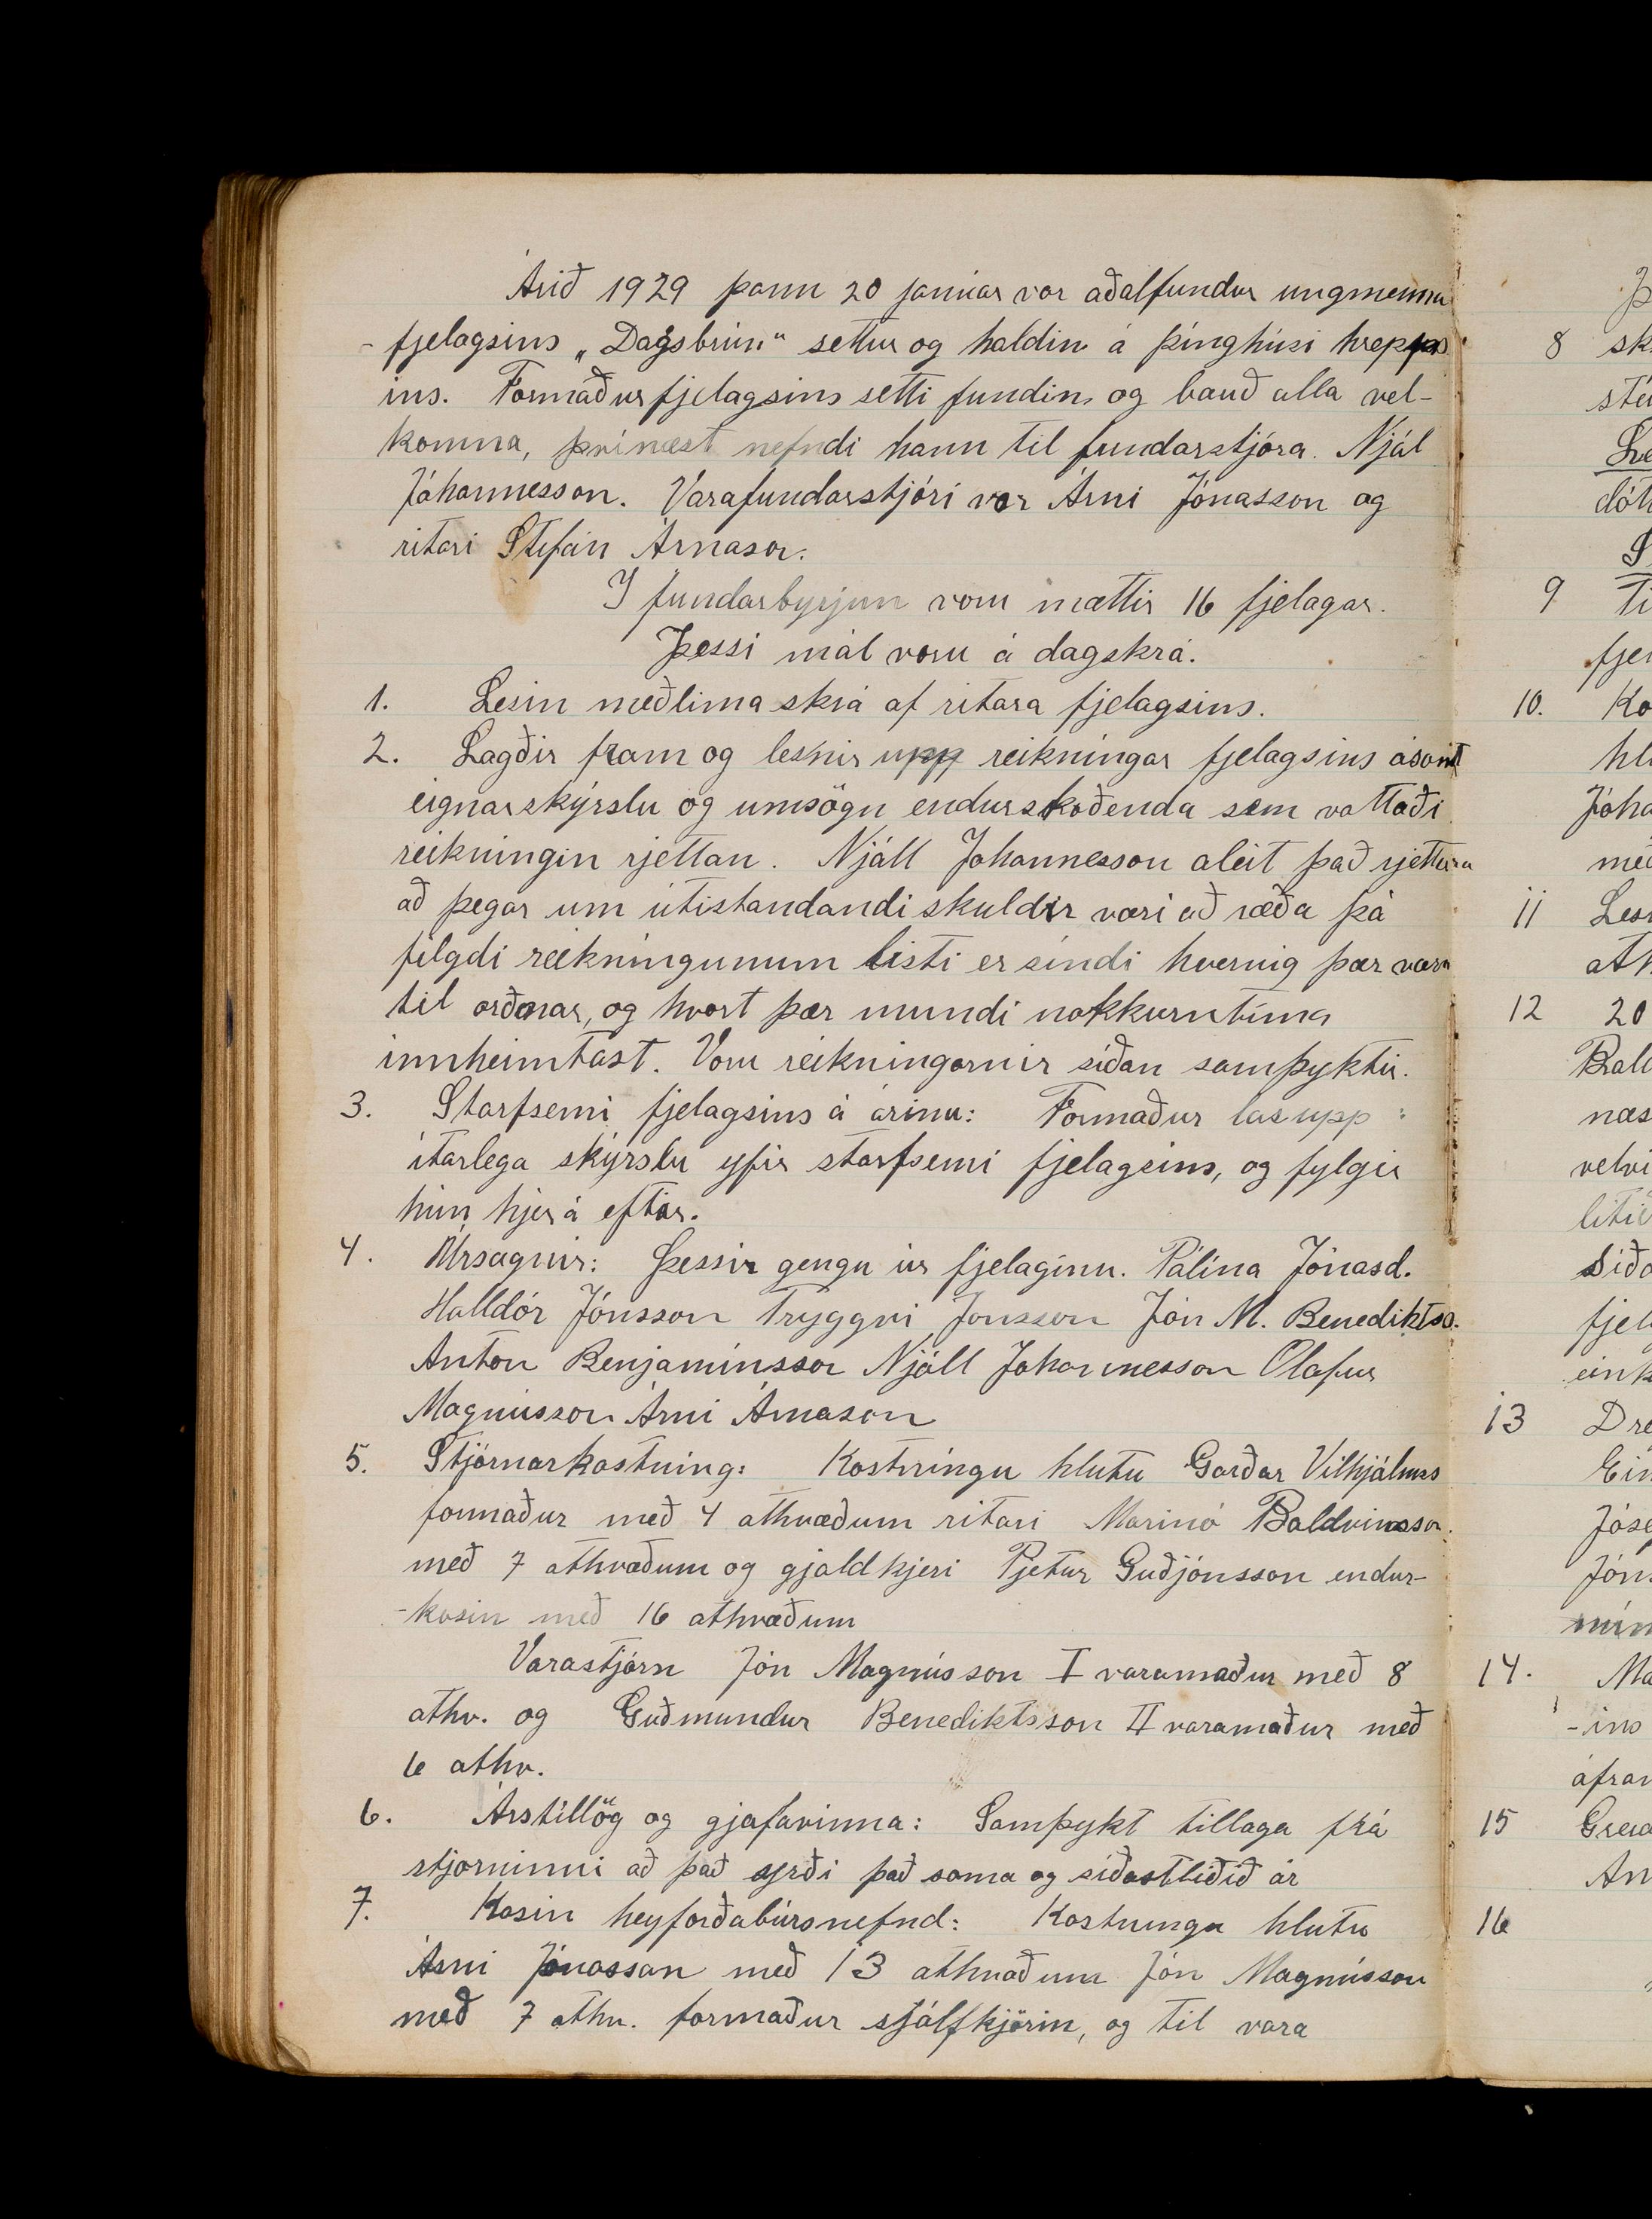 Árið 1929 þann 20 janúar var aðalfundur ungmenna
- fjelagsins „Dagsbrún" settur og haldin á þinghúsi hrepps
ins. Formaður fjelagsins setti fundin og bauð alla vel-
komna, þvínæst nefndi hann til fundarstjóra. Njál
Jóhannesson. Varafundarstjóri var Árni Jónasson og
ritari Stefán Árnason.
I fundarbyrjun voru mættir 16 fjelagar.
Þessi mál voru á dagskrá.
1. Lesin meðlima skrá af ritara fjelagsins.
2. Lagðir fram og lesnir upp reikningar fjelagsins ásamt
eignarskýrslu og umsögn endurskoðenda sem vottaði
reikningin rjettan. Njáll Johannesson áleit það rjettara
að þegar um útistandandi skuldir væri að ræða þá
filgdi reikningunum listi er síndi hvernig þær væru
til orðnar, og hvort þær mundi nokkurntíma
innheimtast. Voru reikningarnir síðan samþyktir.
3. Starfsemi fjelagsins á árinu: Formaður las upp
ítarlega skýrslu yfir starfsemi fjelagsins, og fylgir
hún hjer á eftir.
4. Úrsagnir: Þessir gengu úr fjelaginu. Pálína Jónasd.
Halldór Jónsson Tryggvi Jonsson Jón M. Benediktso.
Anton Benjamínsson Njáll Johannesson Olafur
Magnússon Árni Árnason
5. Stjórnarkostning: Kostningu hlutu Garðar Vilhjálmss
formaður með 4 athvæðum ritari Marinó Baldvinsson.
með 7 athvæðum og gjaldkjeri Pjetur Guðjónsson endur-
-kosin með 16 athvæðum
Varastjórn Jón Magnússon I varamaður með 8
athv. og Guðmundur Benediktsson II varamaður með
6 athv.
6. Árstillög og gjafavinna: Samþykt tillaga frá
stjorninni að það yrði það sama og síðastliðið ár
7. Kosin heyforðabúrsnefnd: Kostningu hlutu
Árni Jónasson með 13 athvæðum Jón Magnússon
með 7 athv. formaður sjálfkjörin, og til vara
8 sk
9 Ti
10. Ko
Jóha
11
12 20
13
14. Ma
-ins
15
16